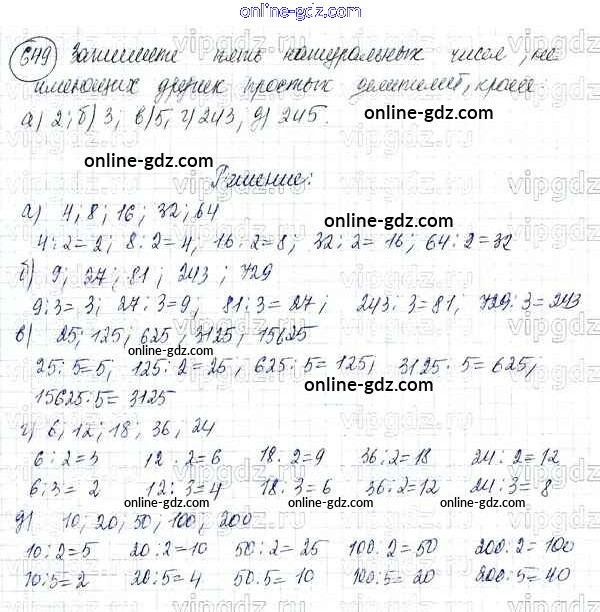 online-gdz.com
649 Запишите пять натуральных чисел, не
имеющих других простых делителей, кроме
а) 2; б) 3; в) 5; г) 243; д) 245.
online-gdz.com
online-gdz.com
Решение:
а) 4; 8; 16; 32; 64
online-gdz.com
4:2=2; 8:2=4; 16:2=8; 32:2=16; 64:2=32
б) 9; 27; 81; 243; 729
9:3=3; 27:3=9; 81:3=27; 243:3=81; 729:3=243
в) 25; 125; 625; 3125; 15625
online-gdz.com
online-gdz.com
25:5=5; 125:2=25, 625:5=125; 3125:5=625;
online-gdz.com
15625:5=3125
г) 6; 12; 18; 36; 24
6:2=3 12:2=6 18:2=9 36:2=18 24:2=12
6:3=2 12:3=4 18:3=6 36:2=12 24:3=8
д) 10; 20; 50; 100; 200
10:2=5 20:2=10 50:2=25 100:2=50 200:2=100
10:5=2 20:5=4 50:5=10 100:5=20 200:5=40